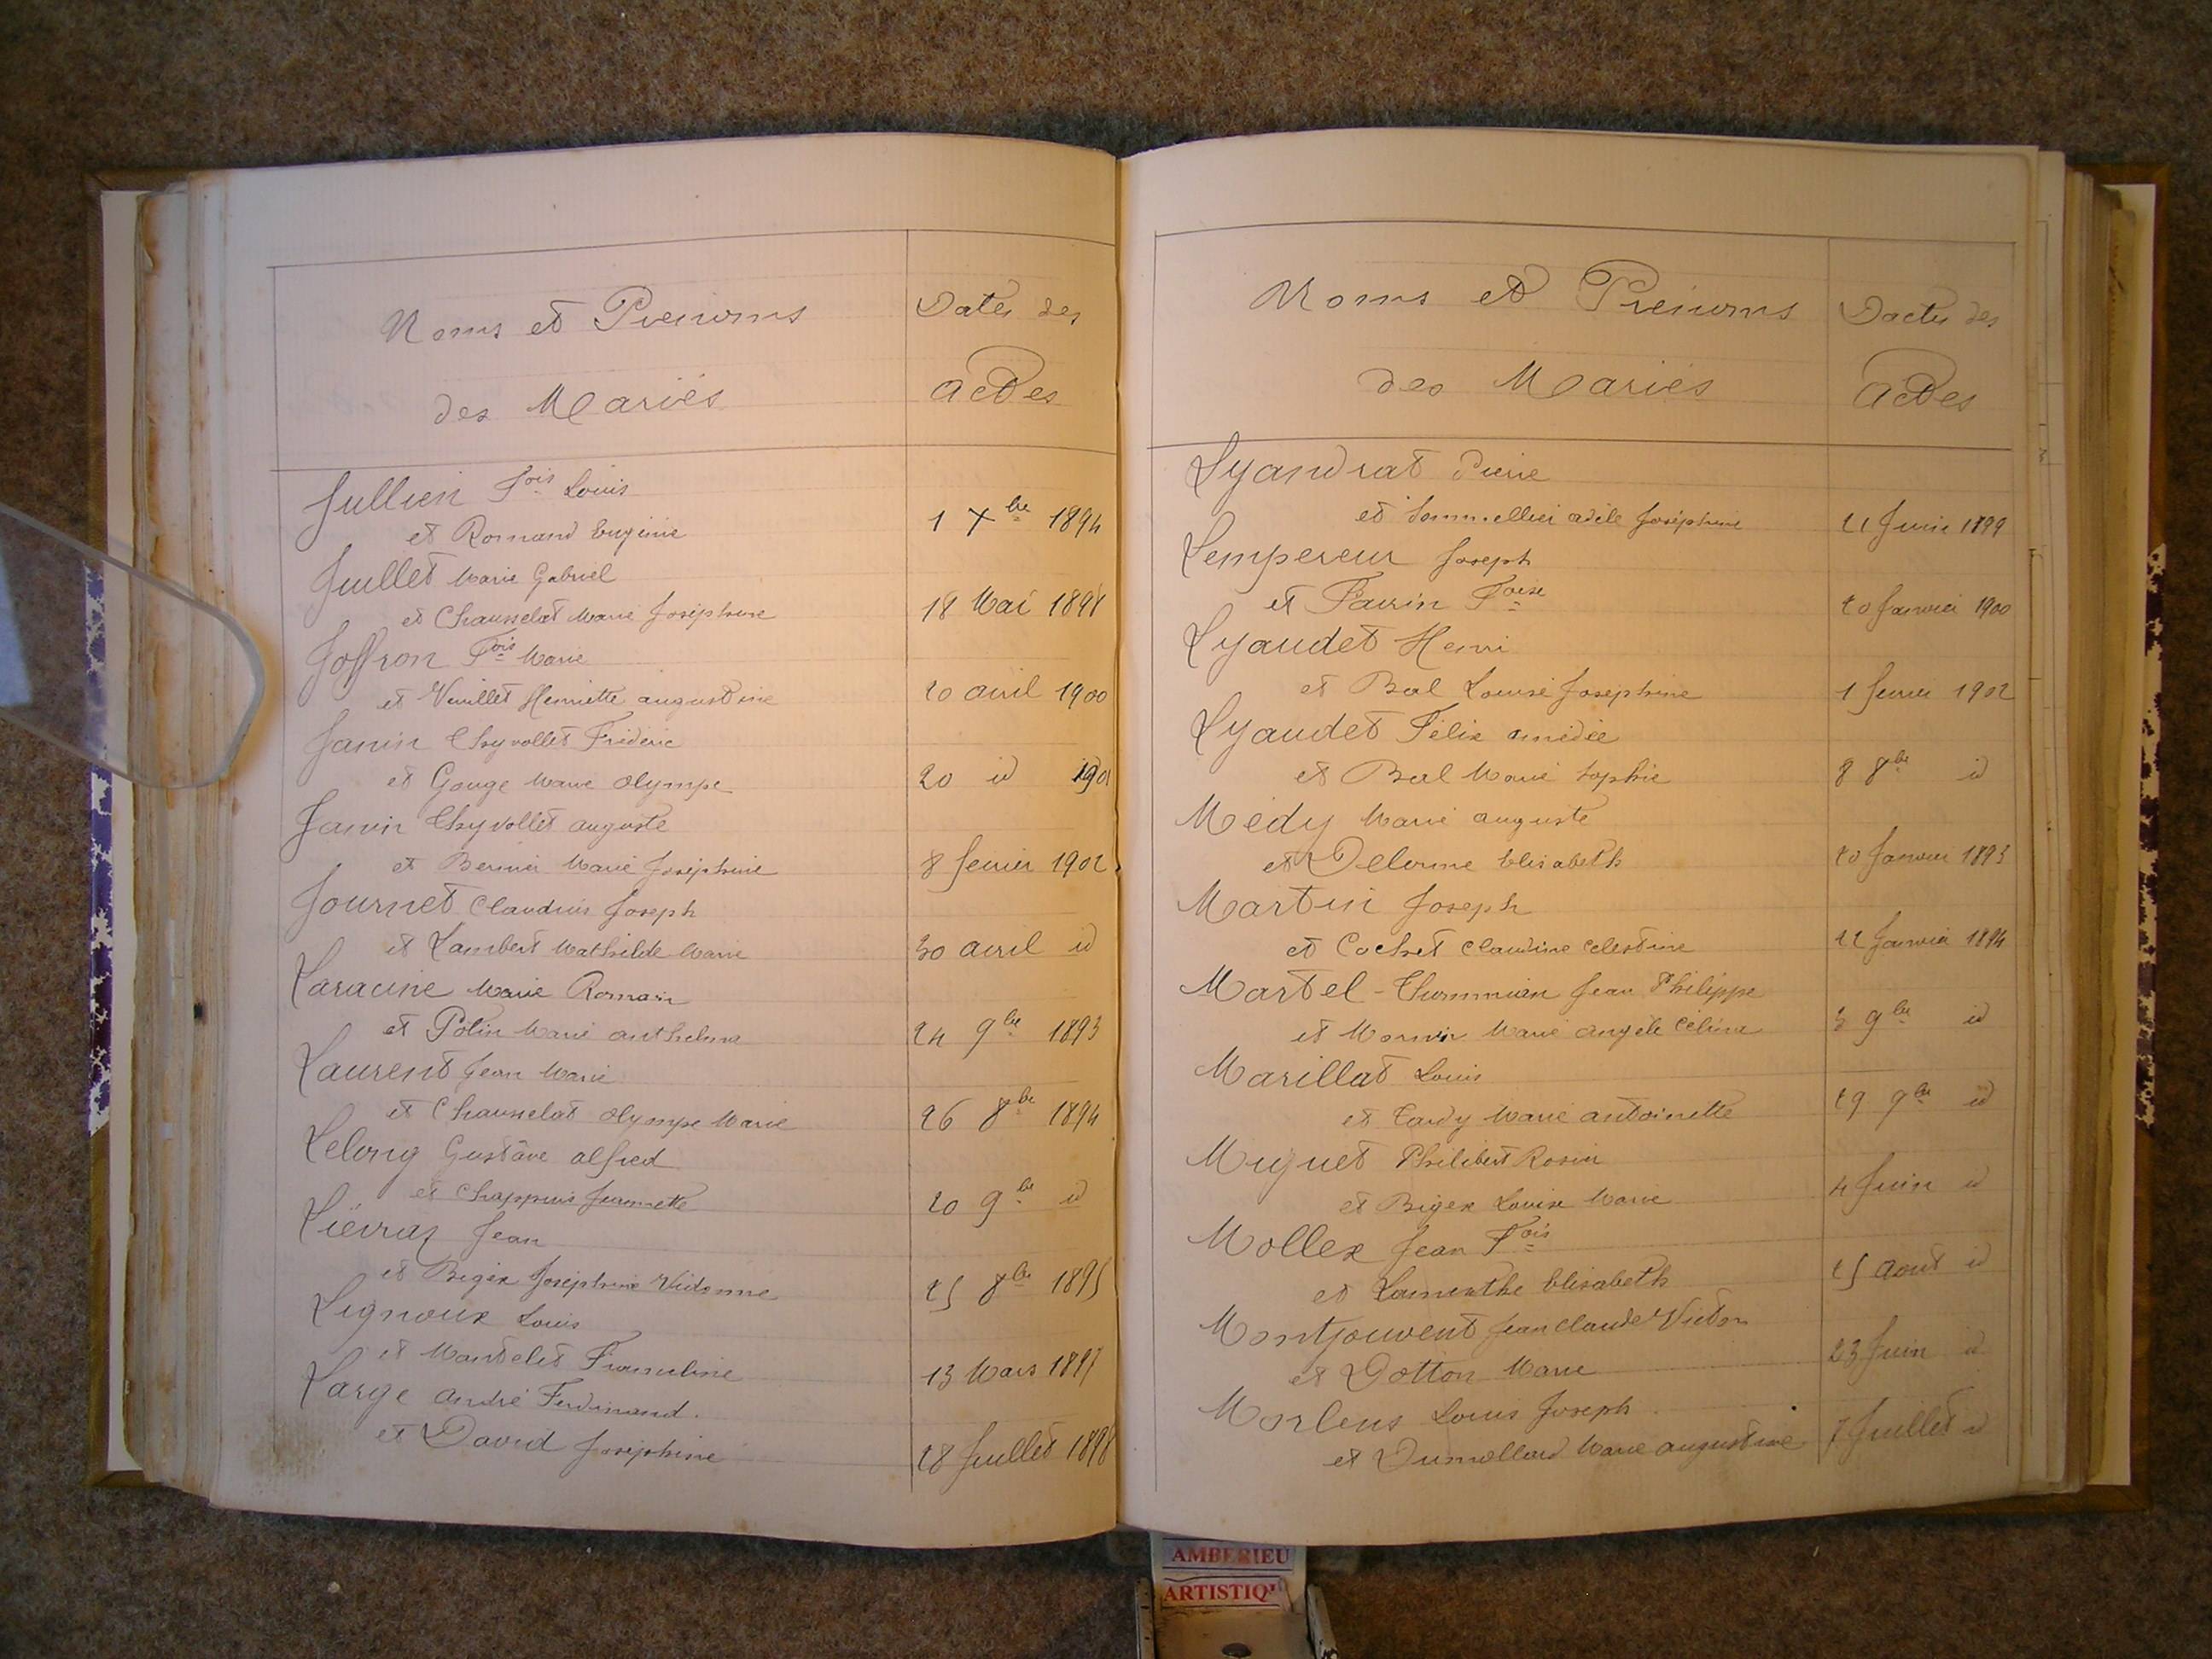 Noms et Prenoms
des Mariés
Dates des
actes
Jullien Fois Louis
et Romand Eugénie
1 Xbre 1894
Juillet Marie Gabriel
et Chausselat Marie Joséphine
18 Mai 1898
Joffron Fois Marie
et Veuillet Henriette augustine
20 avril 1900
Janin Chyvollet Frédéric
et Gouge Marie Olympe
20 id 1901
Janin Chyvollet auguste
et Bernier Marie Joséphine
8 février 1902
Journet Claudius Joseph
et Lambert Mathilde Marie
30 avril id
Laracine Marie Romain
et Potin Marie anthelma
24 9bre 1893
Laurent Jean Marie
et Chausselat Olympe Marie
26 8bre 1894
Lelong Gustave alfred
et Chappuis Jeannette
20 9bre id
Liévraz Jean
et Bigex Joséphine Vidonne
25 8bre 1895
Lignoux Louis
et Mantelet Franceline
13 Mars 1897
Large André Ferdinand.
et David Joséphine
28 Juillet 1898
Noms et Prénoms
des Mariés
Dactes des
actes
Lyandrat Pierre
et Sommellier adèle Joséphine
21 Juin 1899
Lempereur Joseph
et Favrin Foise
20 Janvier 1900
Lyaudet Henri
et Bal Louise Joséphine
1 fevrier 1902
Lyaudet Félix amédée
et Bal Marie Sophie
8 8bre id
Médy Marie auguste
et Delorme Elisabeth
20 Janvier 1893
Martin Joseph
et Cochet Claudine Celestine
22 Janvier 1894
Martel-Thurmian Jean Philippe
et Mornin Marie angèle Célina
3 9bre id
Marillat Louis
et Tardy Marie antoinette
29 9bre id
Muguet Philibert Rosin
et Bigex Louise Marie
4 Juin id
Mollex Jean Fois
et Lamurthe Elisabeth
25 aout id
Montjouvent Jean Claude Victor
et Gotton Marie
23 Juin id
Morlens Louis Joseph
et Dumollard Marie augustine
7 Juillet id
AMBERIEU
ARTISTIQU